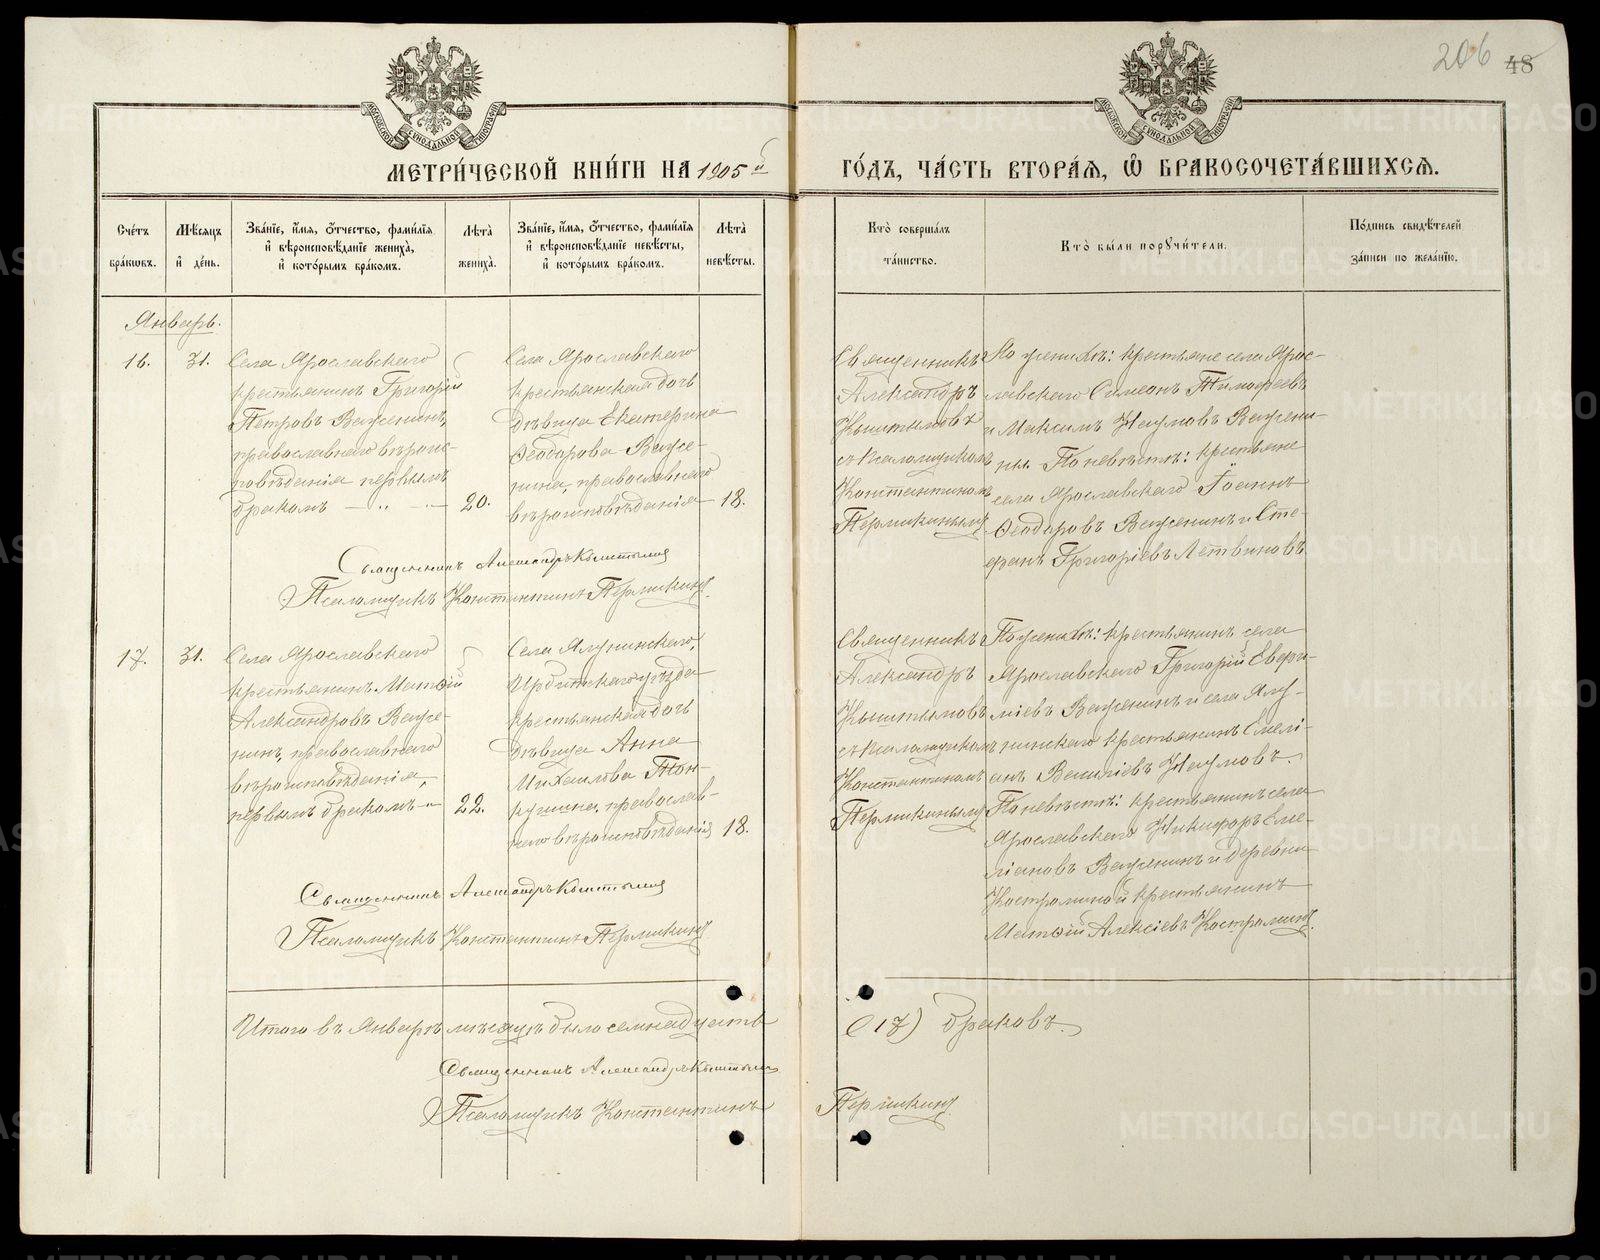 206 48
МЕТРИ́ЧЕСКОЙ КНИ́ГИ НА 1905 й
ГО́ДЪ, ЧА́СТЬ ВТОРА́Я, Ѡ БРАКОСОЧЕТА́ВШИХСЯ.
Сче́тъ бра́кѡвъ.
Мѣ́сяцъ и́ де́нь.
Зва́нїе, и́мя, ѻ́тчество, фами́лїя
и́ вѣроисповѣ́данїе жениха̀,
и́ кото́рымъ бра́комъ.
Лѣ́та̀ жениха̀.
Зва́нїе, и́мя, ѻ́тчество, фами́лїя
и́ вѣроисповѣ́данїе невѣ́сты,
и́ кото́рымъ бра́комъ.
Лѣ́та̀ невѣ́сты.
Кто̀ соверша́лъ
та́инство.
Кто̀ бы́ли поручи́тели.
По́дпись свидѣ́телей
за́писи по жела́нїю.
Январь.
16. 31.
Села Ярославскаго
крестьянинъ Григорій
Петровъ Важенинъ,
православнаго вѣроис-
повѣданія первымъ
бракомъ — „ —
20.
Села Ярославскаго
крестьянская дочь
дѣвица Екатерина
Ѳеодорова Важе-
нина, православнаго
вѣроисповѣданія
18.
Священникъ
Александръ
Кыштымовъ
съ псаломщикомъ
Константиномъ
Пермикинымъ
По женихѣ: крестьяне села Яро-
славскаго Симеонъ Тимофеевъ
и Максимъ Наумовъ Важени-
ны. По невѣстѣ: крестьяне
села Ярославскаго Іоаннъ
Ѳеодоровъ Важенинъ и Сте-
фанъ Григоріевъ Летвиновъ
Священникъ Александръ Кыштымов
Псаломщикъ Константинъ Пермикинъ
17. 31.
Села Ярославскаго
крестьянинъ Матѳій
Александровъ Важе-
нинъ, православнаго
вѣроисповѣданія,
первымъ бракомъ „
22.
Села Ялунинскаго,
Ирбитскаго уѣзда
крестьянская дочь
дѣвица Анна
Михаилова Тон-
кушина, православ-
наго вѣроисповѣданія
18.
Священникъ
Александръ
Кыштымовъ
съ псаломщикомъ
Константиномъ
Пермикинымъ
По женихѣ: крестьянинъ села
Ярославскаго Григорій Еварм-
піевъ Важенинъ и села Ялу-
нинскаго крестьянинъ Емелі-
анъ Василіевъ Наумовъ.
По невѣстѣ: крестьянинъ села
Ярославскаго Никифоръ Еме-
ліановъ Важенинъ и деревни
Костроминой крестьянинъ
Матѳій Алексіевъ Костроминъ.
Священникъ Александръ Кыштымов
Псаломщикъ Константинъ Пермикинъ
Итого въ Январѣ мѣсяцѣ было семнадцать
(17) браковъ.
Священникъ Александръ Кыштымов
Псаломщикъ Константинъ Пермикинъ